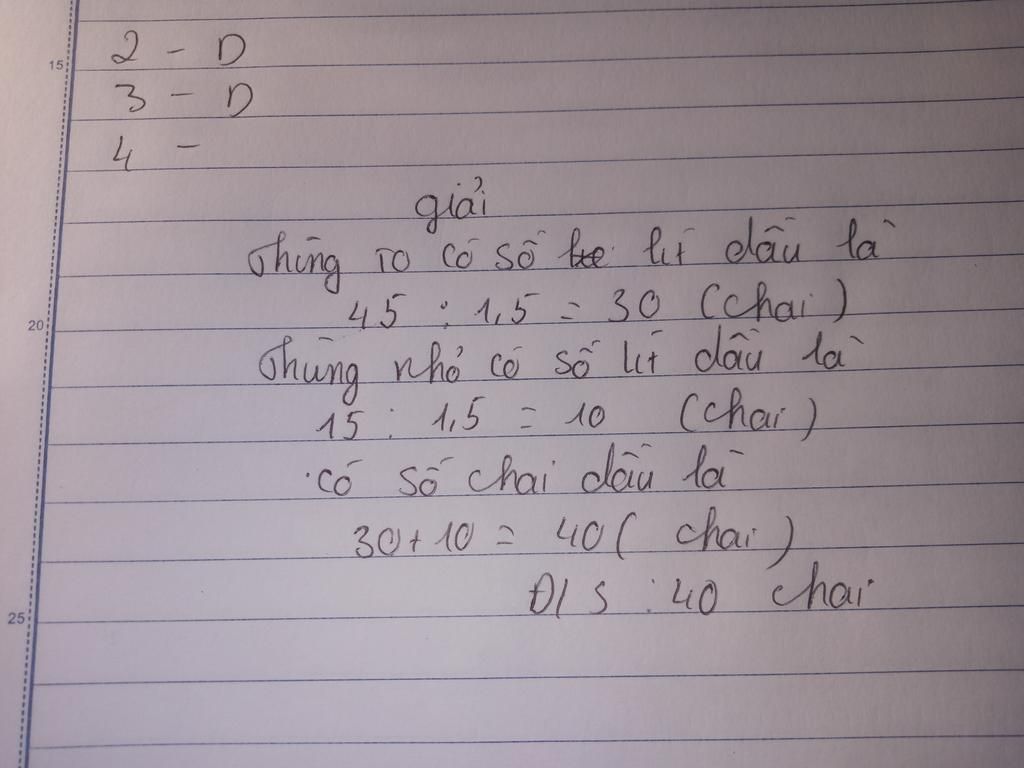 15
2 - D
3 - D
4 -
giải
Thùng to có số lít dầu là
45 : 1,5 = 30 (chai)
20
Thùng nhỏ có số lít dầu là
15 : 1,5 = 10 (chai)
có số chai dầu là
30 + 10 = 40 (chai)
Đ/S : 40 chai
25